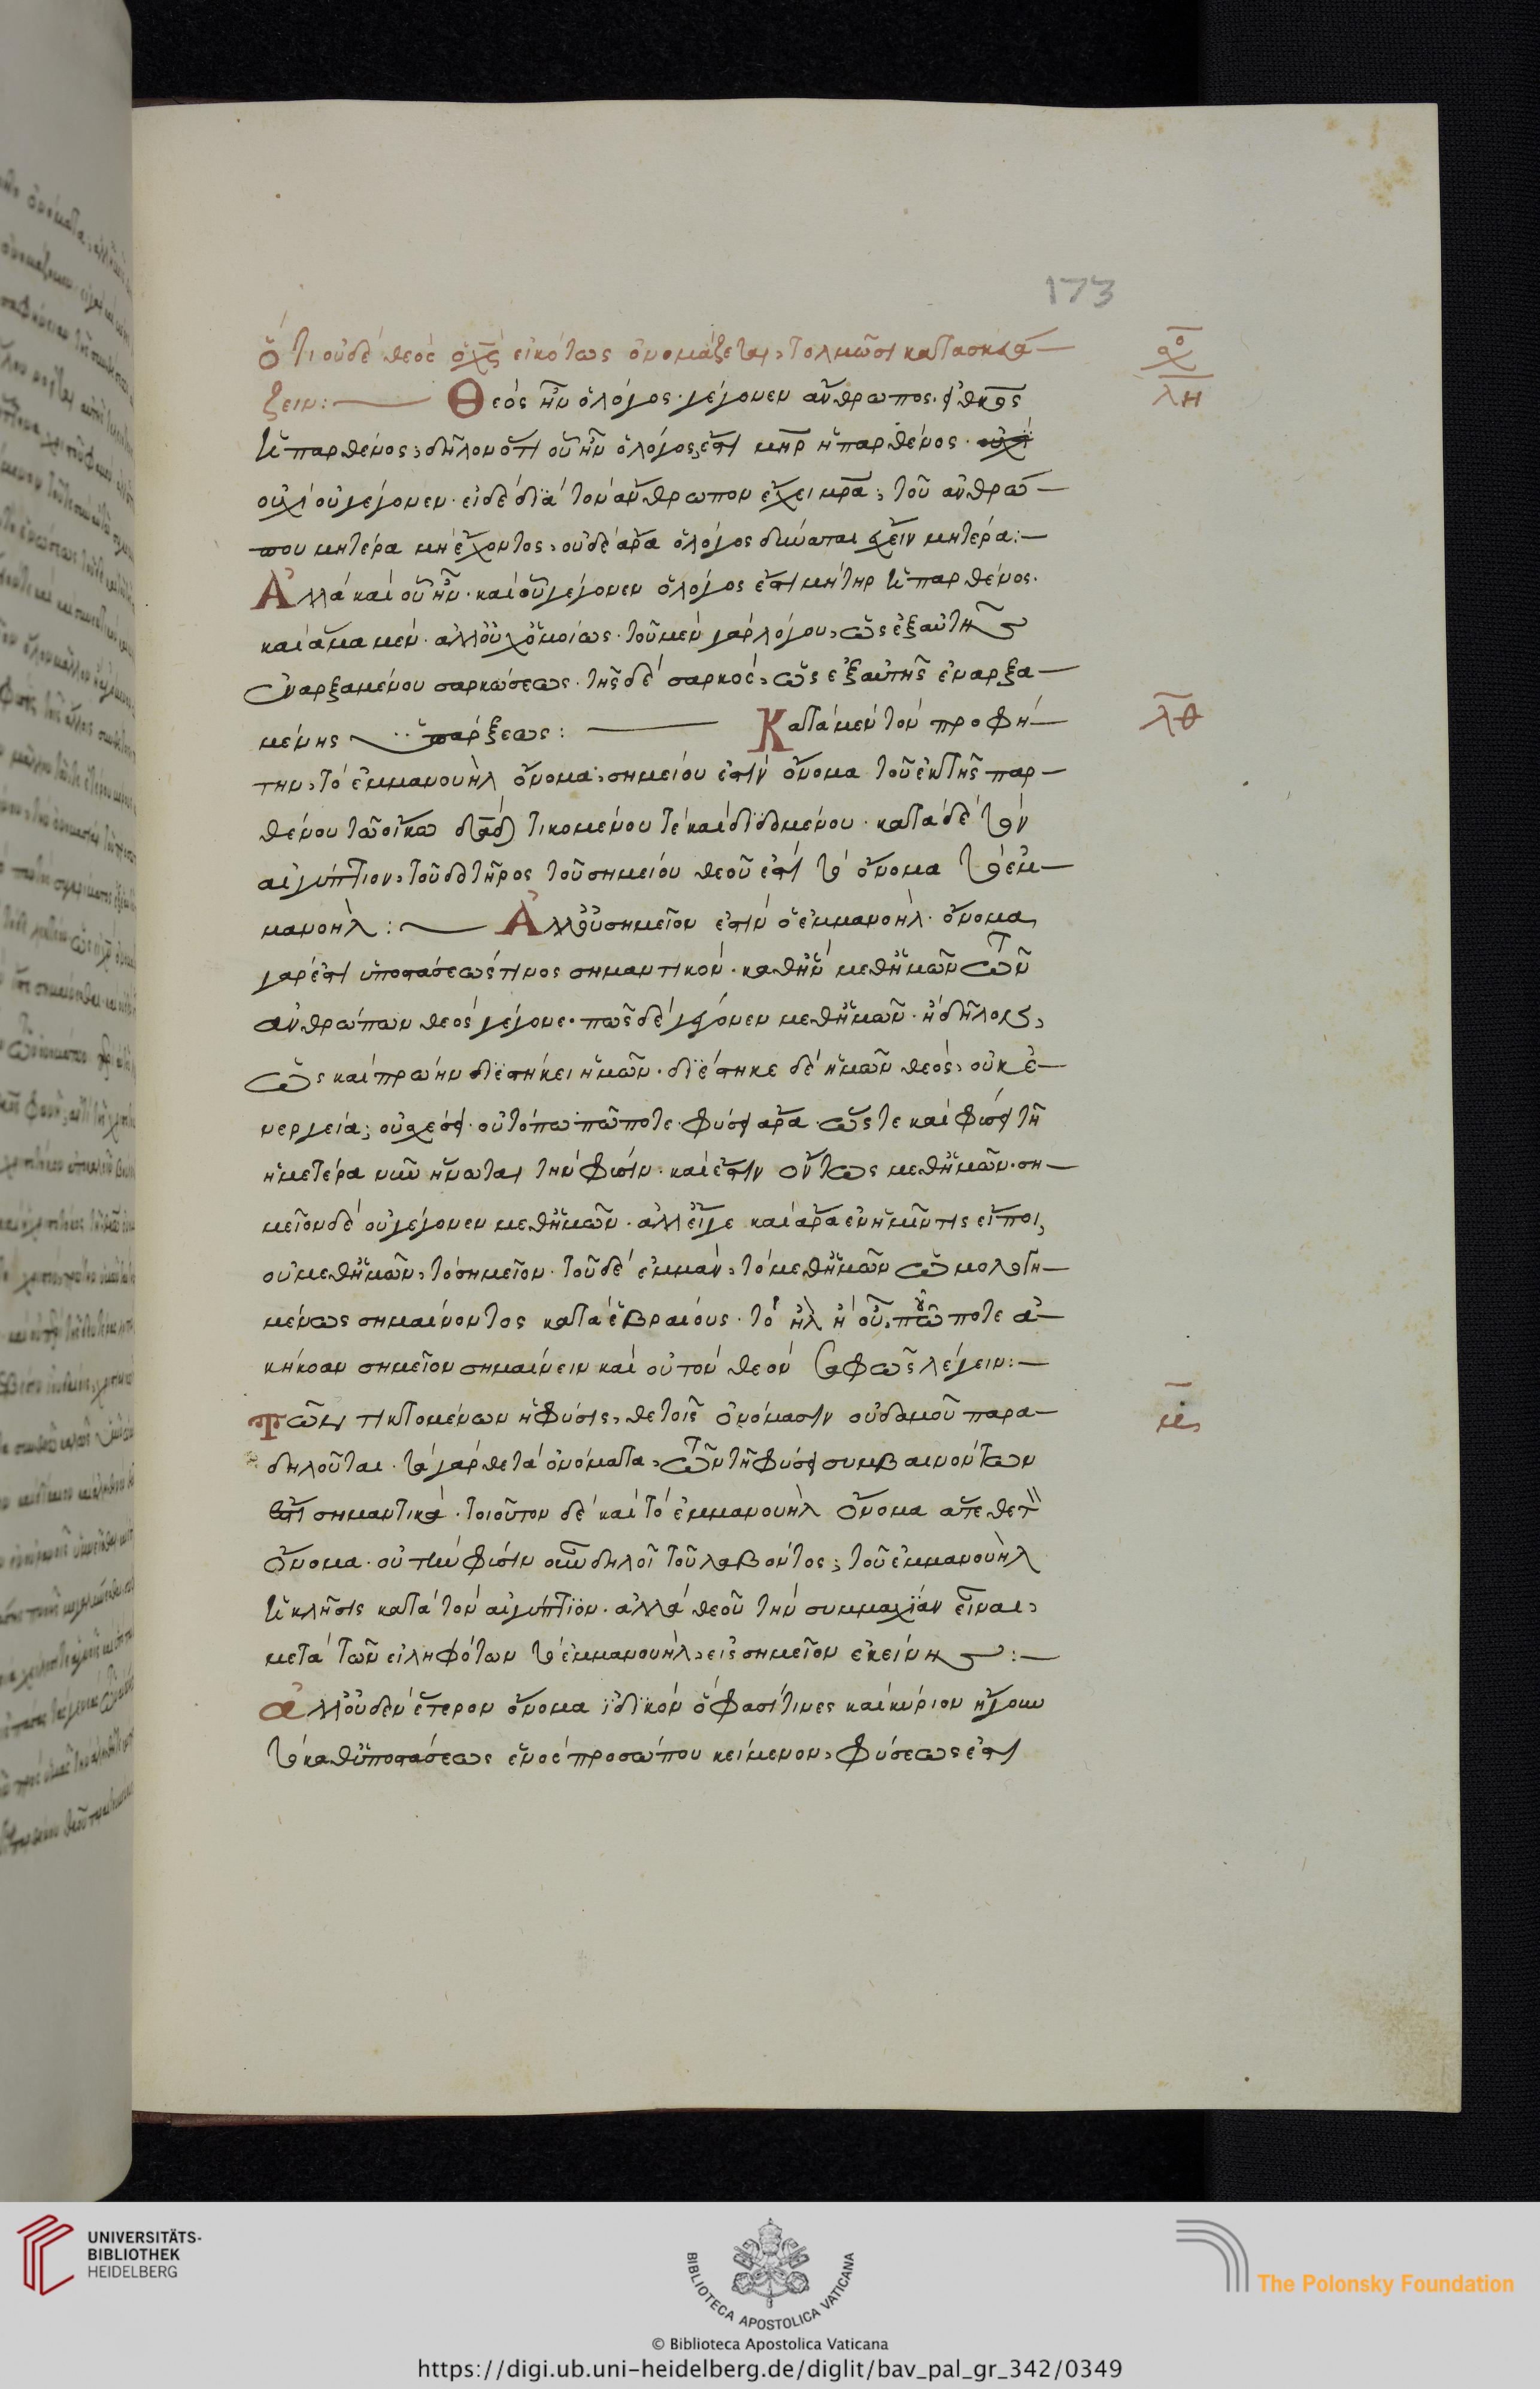 173
ὅτι οὐδὲ θεὸς ὁ χς εἰκότως ὀνομάζεται, τολμῶσι κατασκευά-
ζειν: Θεὸς ἦν ὁ λόγος. γέγονεν ἄνθρωπος.
ἡ παρθένος, δῆλον ὅτι οὗ ἦν ὁ λόγος, ἐστὶ μηρ ἡ παρθένος.
οὐχὶ οὗ γέγονεν. εἰ δὲ διὰ τὸν ἄνθρωπον ἔχει μρα, τοῦ ἀνθρώ-
που μητέρα μὴ ἔχοντος, οὐδὲ ἄρα ὁ λόγος δύναται σχεῖν μητέρα:
Ἀλλὰ καὶ οὗ ἦν. καὶ οὗ γέγονεν ὁ λόγος ἐστὶ μήτηρ ἡ παρθένος.
καὶ ἅμα μὲν. ἀλλ' οὐχ ὁμοίως. τοῦ μὲν γὰρ λόγου, ὡς ἐξ αὐτῆς
ἐναρξαμένου σαρκώσεως. τῆς δὲ σαρκὸς, ὡς ἐξ αὐτῆς ἐναρξα-
μένης ὑπάρξεως: Κατὰ μὲν τὸν προφή-
την, τὸ ἐμμανουὴλ ὄνομα, σημείου ἐστὶν ὄνομα τοῦ ἐκ τῆς παρ-
θένου τῶ οἴκω δαδ τικομένου τὲ καὶ διδομένου. κατὰ δὲ τὸν
αἰγύπτιον, τοῦ δοτῆρος τοῦ σημείου θεοῦ ἐστὶ τὸ ὄνομα τὸ ἐμ-
μανοὴλ: Ἀλλ' οὐ σημεῖον ἐστὶν ὁ ἐμμανοὴλ. ὄνομα
γάρ ἐστι ὑποστάσεως τινος σημαντικόν. καθ' ἣν μεθ' ἡμῶν τῶν
ἀνθρώπων θεὸς γέγονε. πῶς δὲ γέγονεν μεθ' ἡμῶν. ἢ δῆλον,
ὡς καὶ πρώην διεστήκει ἡμῶν. διέστηκε δὲ ἡμῶν θεὸς, οὐκ ἐ-
νεργεία, οὐ σχέσει. οὐ τόπω πώποτε. φύσει ἄρα. ὥς τε καὶ φύσει τῆ
ἡμετέρα νῦν ἥνωται τὴν φύσιν. καὶ ἔστιν ὄντως μεθ' ἡμῶν. ση-
μεῖον δὲ οὐ γέγονεν μεθ' ἡμῶν. ἀλλ' εἴγε καὶ ἄρα ἐν ἡμῖν τις εἴποι,
οὐ μεθ' ἡμῶν, τὸ σημεῖον. τοῦ δὲ ἐμμὰν, τὸ μεθ' ἡμῶν ὡμολογη-
μένως σημαίνοντος κατὰ ἑβραίους. τὸ ἢλ ἢ οὔπω ποτε ἀ-
κήκοαν σημεῖον σημαίνειν καὶ οὐ τὸν θεὸν σαφῶς λέγειν:
Τῶν τικτομένων ἡ φύσις, θετοῖς ὀνόμασιν οὐδαμοῦ παρα-
δηλοῦται. τὰ γὰρ θετὰ ὀνόματα, τῶν τῆ φύσει συμβαινόντων
ἐστὶ σημαντικὰ. τοιοῦτον δὲ καὶ τὸ ἐμμανουὴλ ὄνομα ἅτε θετὸν
ὄνομα. οὐ τὴν φύσιν οὖν δηλοῖ τοῦ λαβόντος, τοῦ ἐμμανουὴλ
ἡ κλῆσις κατὰ τὸν αἰγύπτιον. ἀλλὰ θεοῦ τὴν συμμαχίαν εἶναι,
μετὰ τῶν εἰληφότων τὸ ἐμμανουὴλ, εἰς σημεῖον ἐκείνης:
Ἀλλ' οὐδὲν ἕτερον ὄνομα ἰδικὸν ὅ φασί τινες καὶ κύριον ἤγουν
τὸ καθ' ὑποστάσεως ἑνὸς προσώπου κείμενον, φύσεως ἐστὶ
λη
λθ
UNIVERSITÄTS-
BIBLIOTHEK
HEIDELBERG
BIBLIOTECA APOSTOLICA VATICANA
The Polonsky Foundation
© Biblioteca Apostolica Vaticana
https://digi.ub.uni-heidelberg.de/diglit/bav_pal_gr_342/0349